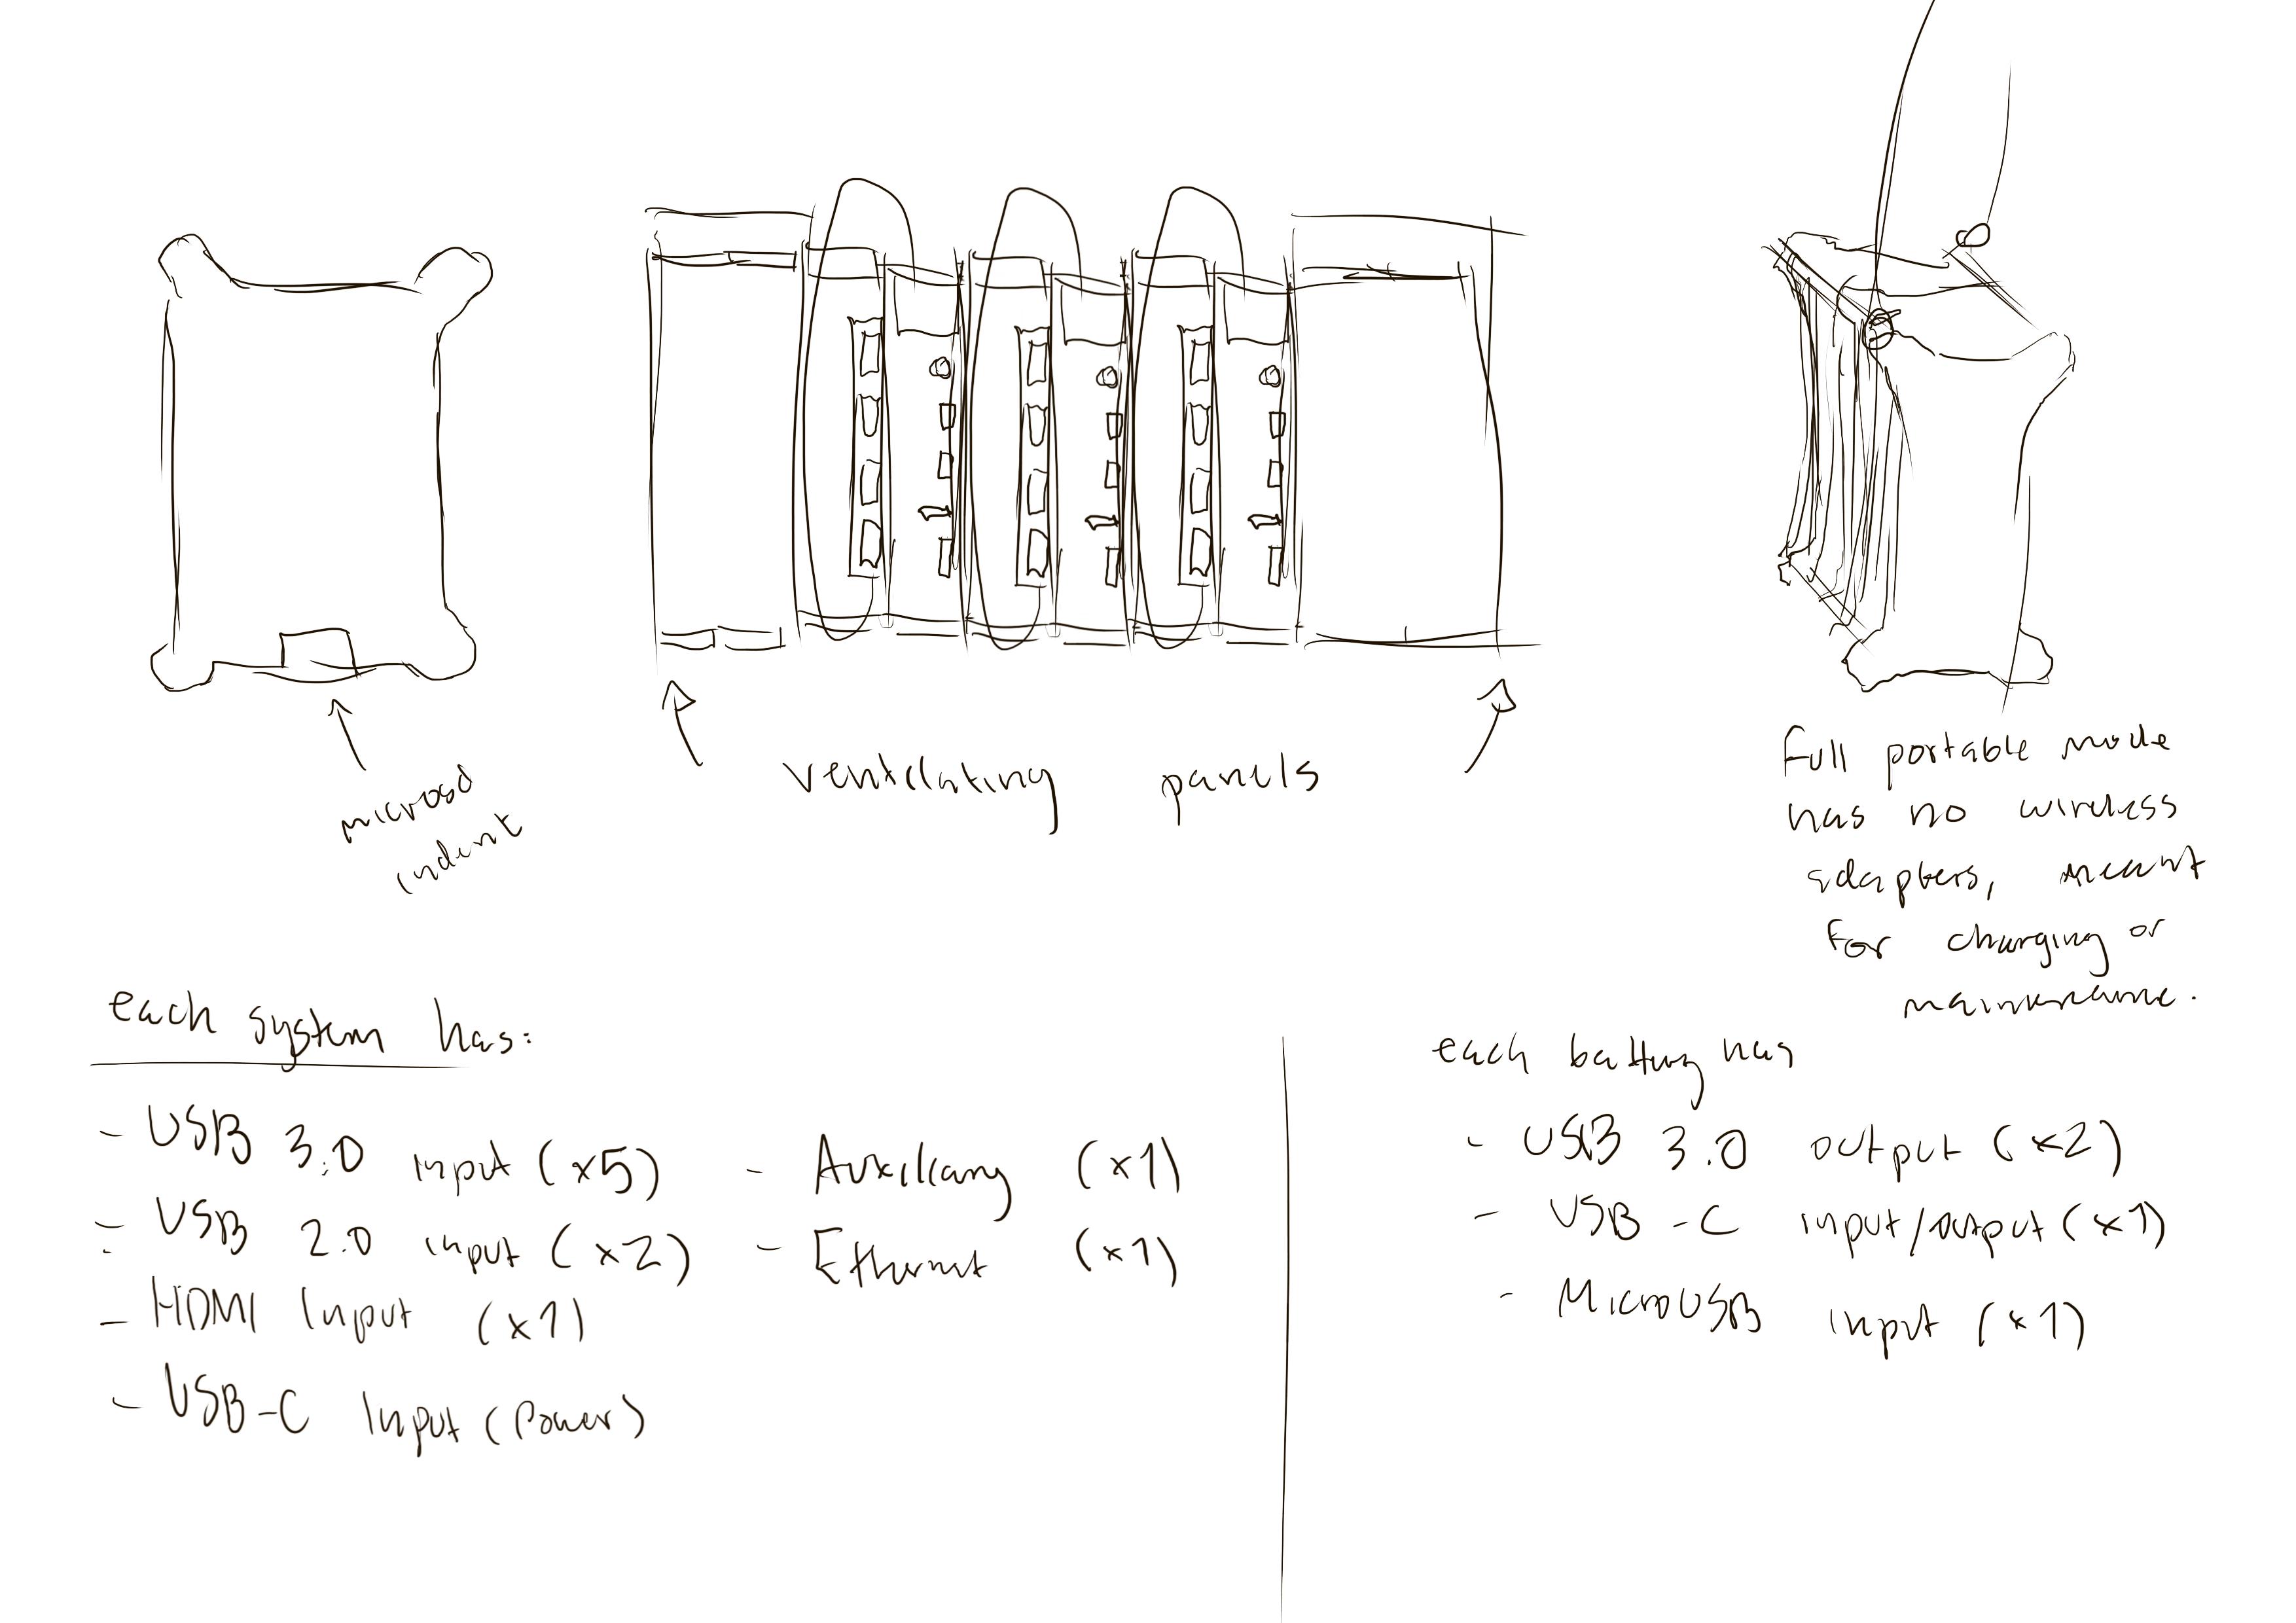 microsd
indent
ventilating panels
Full portable mode
has no wireless
adapters, meant
for charging or
maintenance.
each system has:
- USB 3.0 input (x5)
- USB 2.0 input (x2)
- HDMI Input (x1)
- USB-C Input (Power)
- Auxiliary (x1)
- Ethernet (x1)
each battery has
- USB 3.0 output (x2)
- USB-C input/output (x1)
- MicroUSB input (x1)